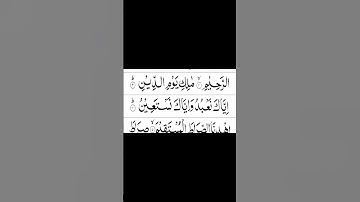 الرَّحِيْمِ ۙ مٰلِكِ يَوْمِ الدِّيْنِ ؕ
اِيَّاكَ نَعْبُدُ وَاِيَّاكَ نَسْتَعِيْنُ ؕ
اِهْدِنَا الصِّرَاطَ الْمُسْتَقِيْمَ ۙ صِرَاطَ